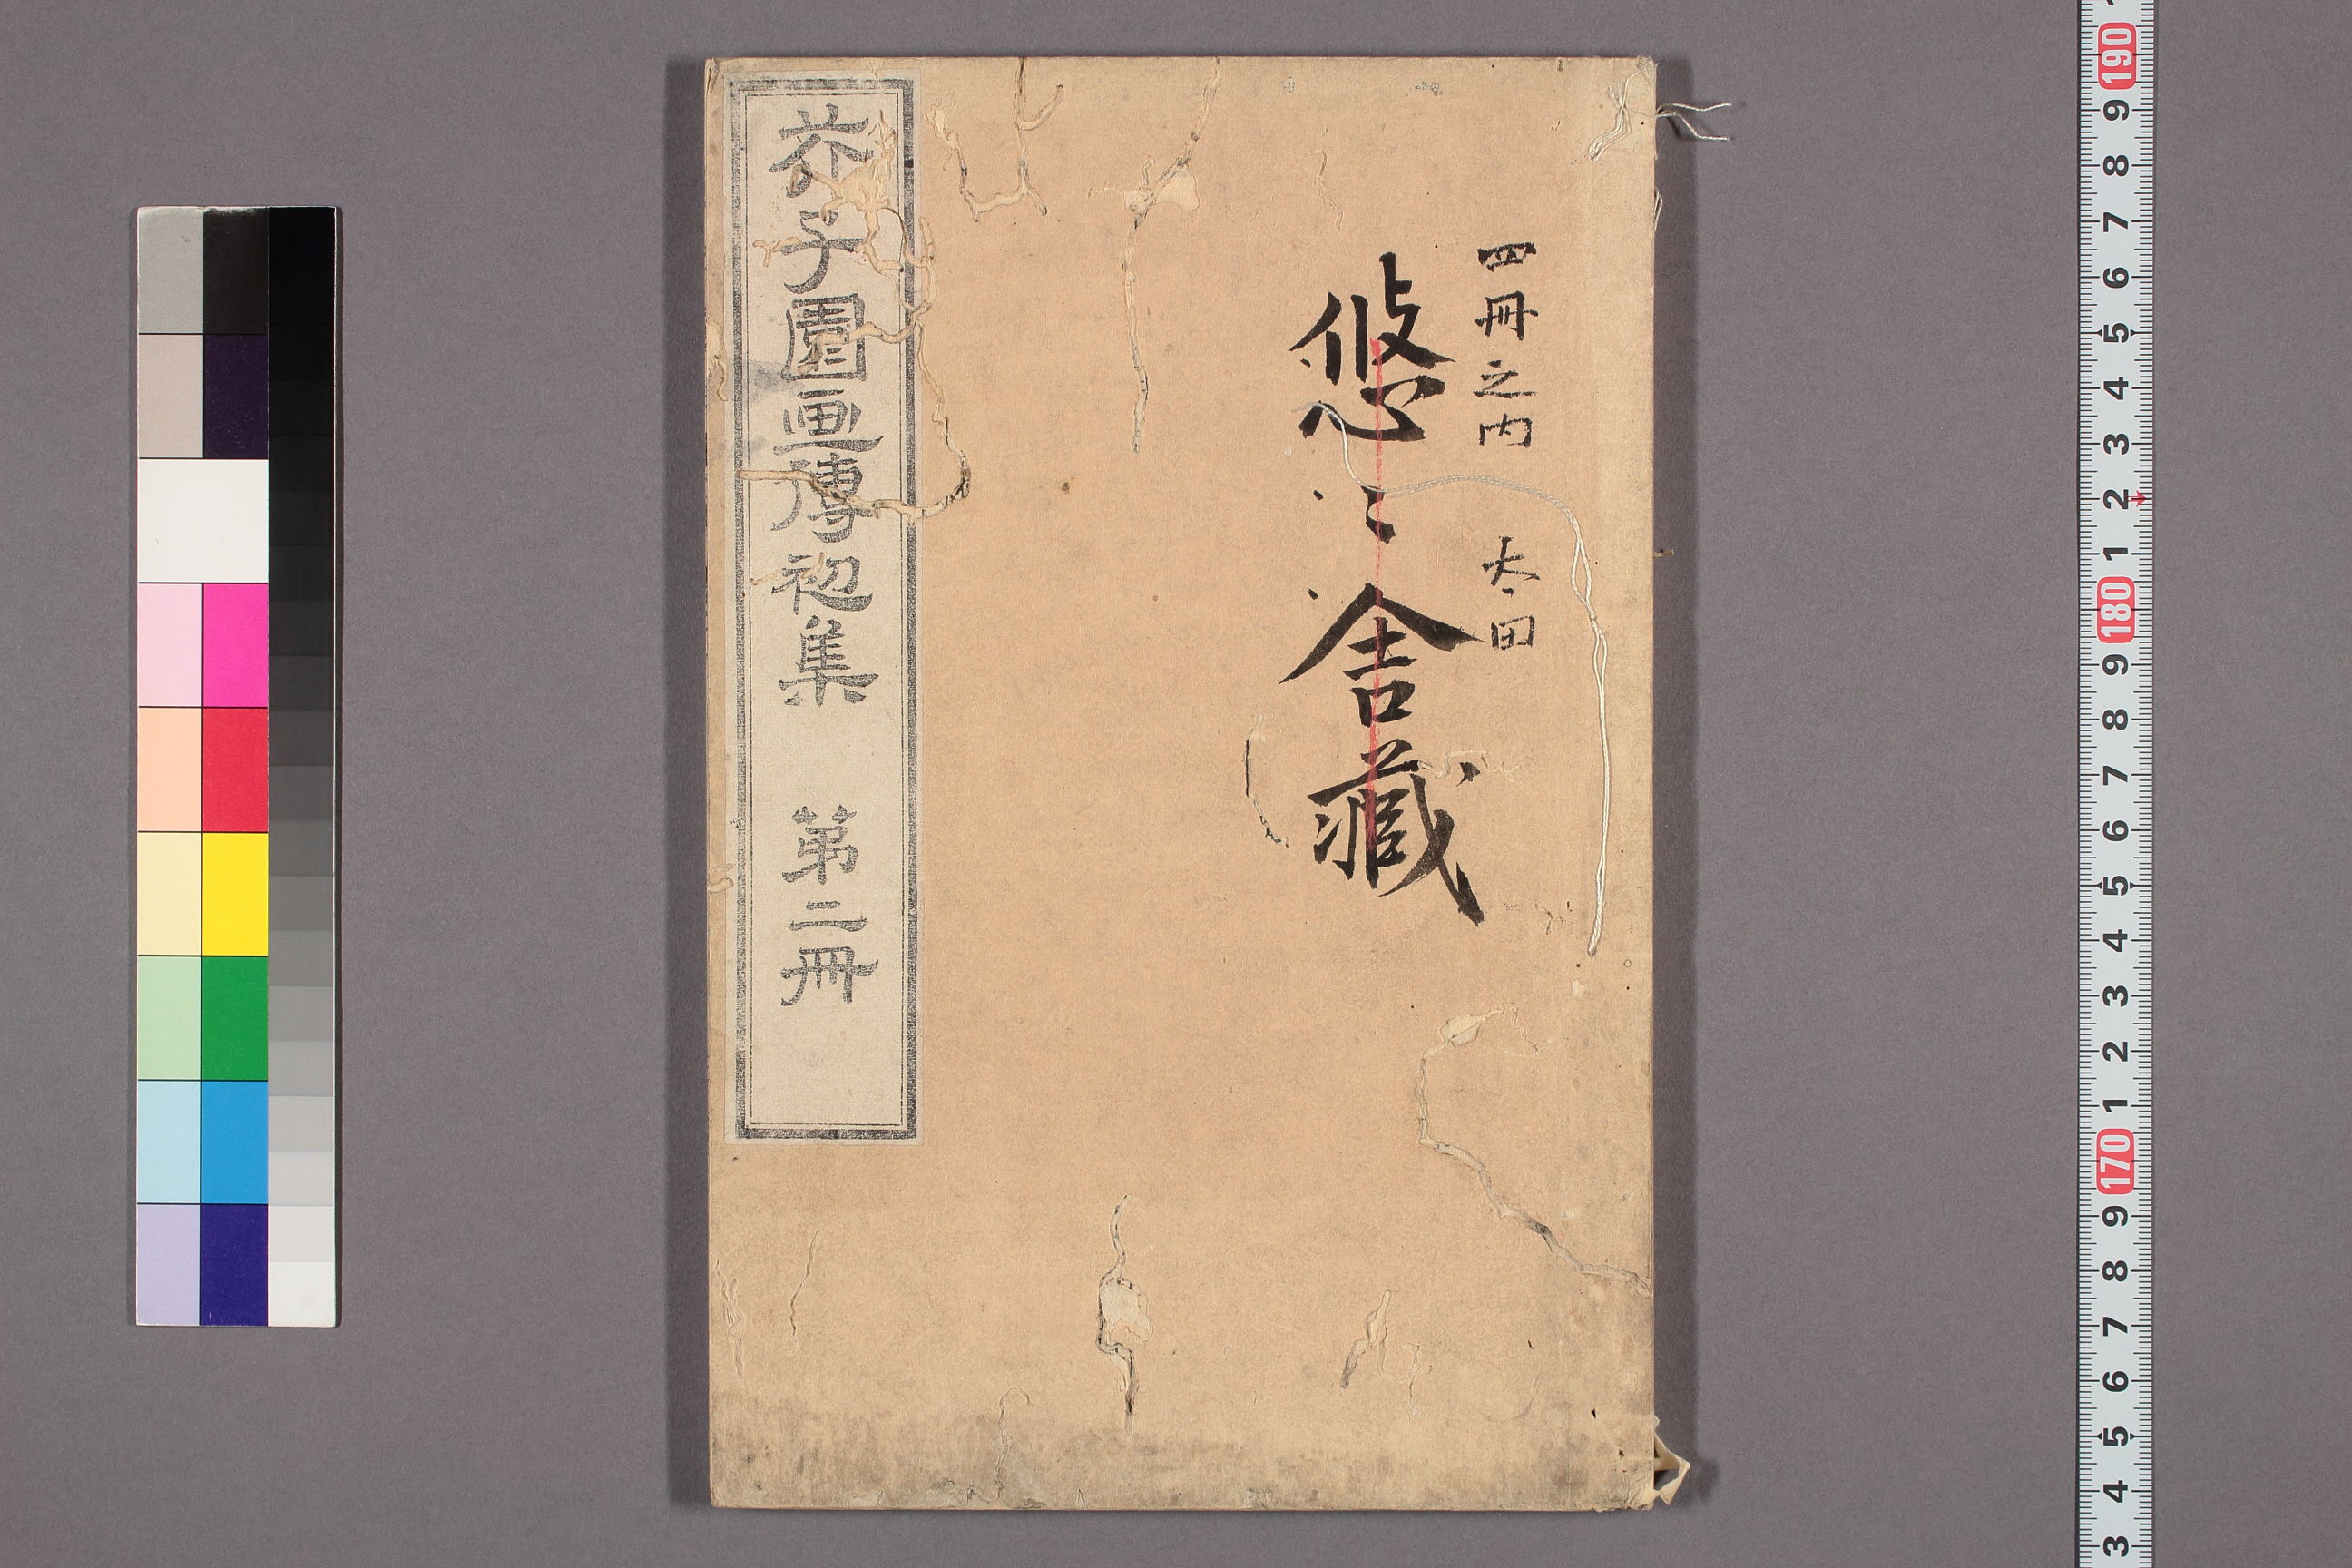 四冊之内 太田
悠〻舎藏
芥子園画傳初集 第二冊
190
9
8
7
6
5
4
3
2
1
180
9
8
7
6
5
4
3
2
1
170
9
8
7
6
5
4
3